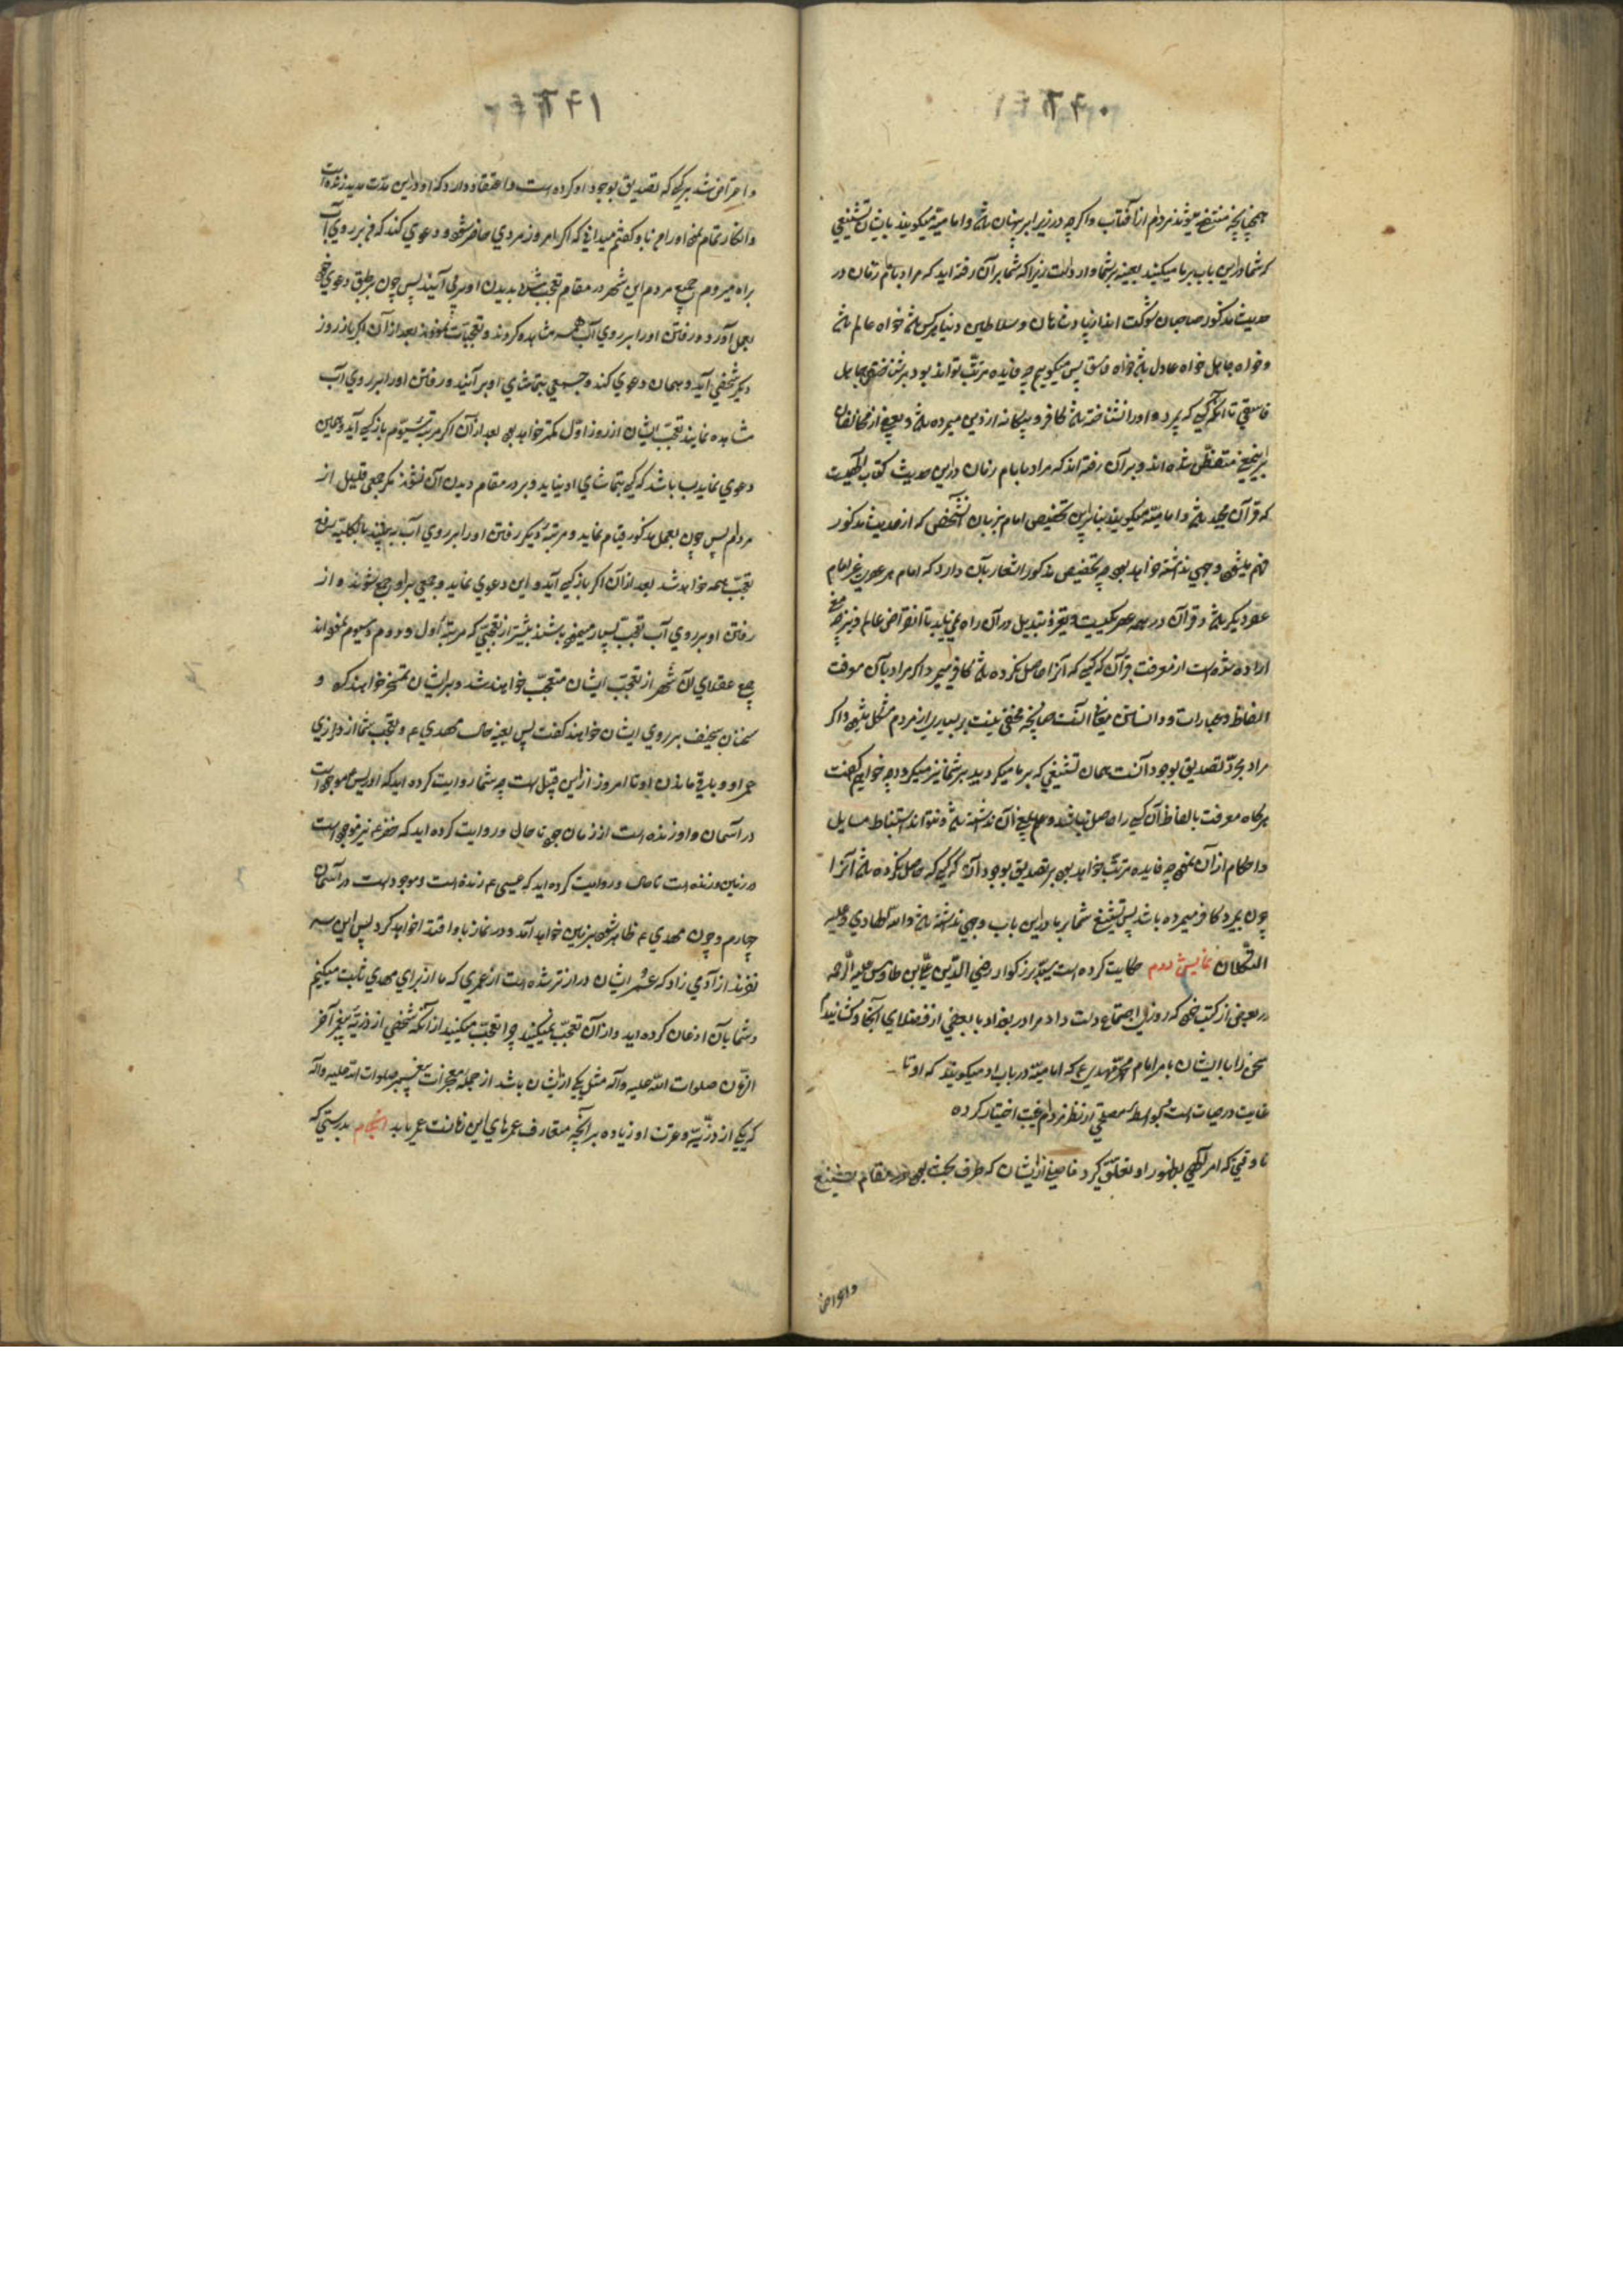 همچنانچه منتفع میشوند مردم از آفتاب واگرچه در زیر ابر پنهان باشد وامامیّه میگویند باینان تشنیعی
که شما دراین باب برما میکنید بعینه برشما وارد است زیرا که شما برآن رفته اید که مراد بامام زمان در
حدیث مذکور صاحبان شوکت اند از پادشاهان وسلاطین دنیا هرکس باشد خواه عالم باشد
وخواه جاهل خواه عادل باشد خواه فاسق پس میگویم چه فایده مرتّب تواند بود برشناختن جاهل
فاسقی تا آنکه کسی که بمیرد و اورا نشناخته باشد کافر و بیگانه از دین میرده باشد وبعضی از مخالفان
براین تشنیع متفطّن شده اند وبرآن رفته اند که مراد بامام زمان دراین حدیث کتاب الهیست
که قرآن مجید باشد وامامیّه میگویند بنابراین تخصیص امام بزمان آنشخص که از حدیث مذکور
فهم میشود وجهی نداشته خواهد بود چه تخصیص مذکور اشعار بآن دارد که امام هر عصری غیر امام
عصر دیگر باشد وقرآن در همه عصر یکیست وتغیّر وتبدیل درآن راه نمی یابد تا انقراض عالم ونیز چه معنی
اراده شده است از معرفت قرآن که کسی که آنرا حاصل نکرده باشد کافر میمیرد اگر مراد بآن معرفت
الفاظ وعبارات ودانستن معانی آنست چنانچه مخفی نیست بر بسیاری از مردم مشکل میشود واگر
مراد مجرّد تصدیق بوجود آنست همان تشنیعی که برما میکردید برشما نیز میگردد چه خواهیم گفت
هرگاه معرفت بالفاظ آن کسی را حاصل نباشد وعلم بمعنی آن نداشته باشد ونتواند استنباط مسایل
واحکام از آن نمود چه فایده مرتّب خواهد بود بر تصدیق بوجود آن که کسی که حاصل نکرده باشد آنرا
چون بمیرد کافر میرده باشد پس تشنیع شما برما دراین باب وجهی نداشته باشد والله الهادی وعلیه
التکلان نمایش دوم حکایت کرده است سیّد بزرگوار رضی الدّین علی بن طاوس علیه الرّحمه
در بعضی از کتب خود که روزی اجتماع دست داد مرا در بغداد با بعضی از فضلای آنجا وکشانیدم
سخن را با ایشان بامر امام محمّد مهدی ع که امامیّه در باب او میگویند که او تا
غایت در حیات است وبواسطه مصلحتی از نظر مردم غیبت اختیار کرده
تا وقتی که امر الهی بظهور او تعلّق گیرد فاضلی از ایشان که طرف بحث بود در مقام تشنیع
واعتراض
واعتراض شد برکسی که تصدیق بوجود او کرده است واعتقاد دارد که او دراین مدّت مدید زنده است
وانکار تمام نمود اورا من باو گفتم میدانی که اگر امروز مردی حاضر شود ودعوی کند که من بر روی آب
براه میروم جمیع مردم این شهر در مقام تعجّب شده بدیدن او برمی آیند پس چون برطبق دعوی خود
بعمل آورد ورفتن اورا بر روی آب همه مشاهده کردند وتعجّبات نمودند بعد از آن اگر باز روز
دیگر شخصی آید وهمان دعوی کند وجمعی بتماشای او برآیند ورفتن اورا بر روی آب
مشاهده نمایند تعجّب ایشان از روز اوّل کمتر خواهد بود بعد از آن اگر مرتبه سیوّم باز کسی آید وهمین
دعوی نماید بسا باشد که کسی بتماشای او نیاید ودر مقام دیدن آن نشوند مگر جمعی قلیل از
مردم پس چون بعمل مذکور قیام نماید ومرتبه دیگر رفتن اورا بر روی آب به بینند بالکلیّه رفع
تعجّب همه خواهد شد بعد از آن اگر باز کسی آید واین دعوی نماید وجمعی براو جمع شوند واز
رفتن او بر روی آب تعجّب بسیار مینموده باشند بیشتر از تعجّبی که مرتبه اول ودوم وسیوم نمودند
جمیع عقلای آن شهر از تعجّب ایشان متعجّب خواهند شد وبرایشان تمسخر خواهند کرد و
سخنان سخیف بر روی ایشان خواهند گفت پس بعینه حال مهدی ع وتعجّب شما از درازی
عمر او وباقی ماندن او تا امروز از این قبیل است چه شما روایت کرده اید که ادریس موجود است
در آسمان واو زنده است از زمان خود تا حال وروایت کرده اید که خضر ع نیز موجود است
در زمین وزنده است تا حال وروایت کرده اید که عیسی ع زنده است وموجود است در آسمان
چهارم وچون مهدی ع ظاهر شود بزمین خواهد آمد ودر نماز باو اقتدا خواهد کرد پس این سه
نفرند از آدمی زاد که عمر ایشان درازتر شده است از عمری که ما از برای مهدی ثابت میکنیم
وشما بآن اذعان کرده اید واز آن تعجّب نمیکنید چرا تعجّب میکنید از آنکه شخصی از ذرّیّه پیغمبر آخر
الزّمان صلوات الله علیه وآله مثل یکی از ایشان باشد از جمله معجزات پیغمبر صلوات الله علیه وآله
که یکی از ذرّیّه وعترت او زیاده برآنچه متعارف عمرهای این زمانست عمر یابد انجام بدرستی که